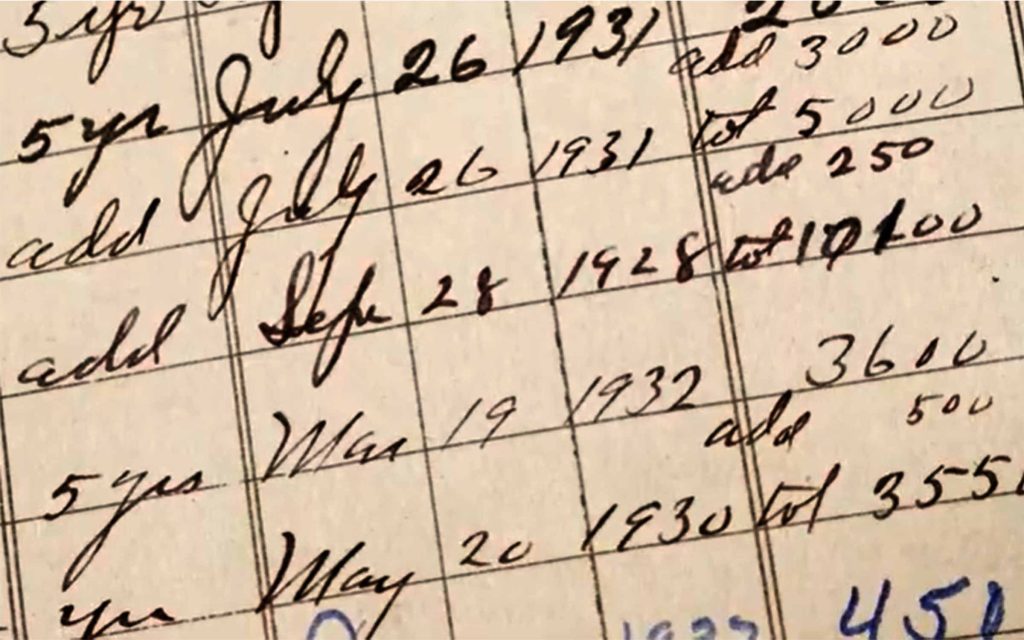 5 yr
5 yr July 26 1931 add 3000
add July 26 1931 tot 5000
add 250
add Sept 28 1928 tot
5 yrs Mar 19 1932 3600
add 500
yr May 20 1930 tot 355
451